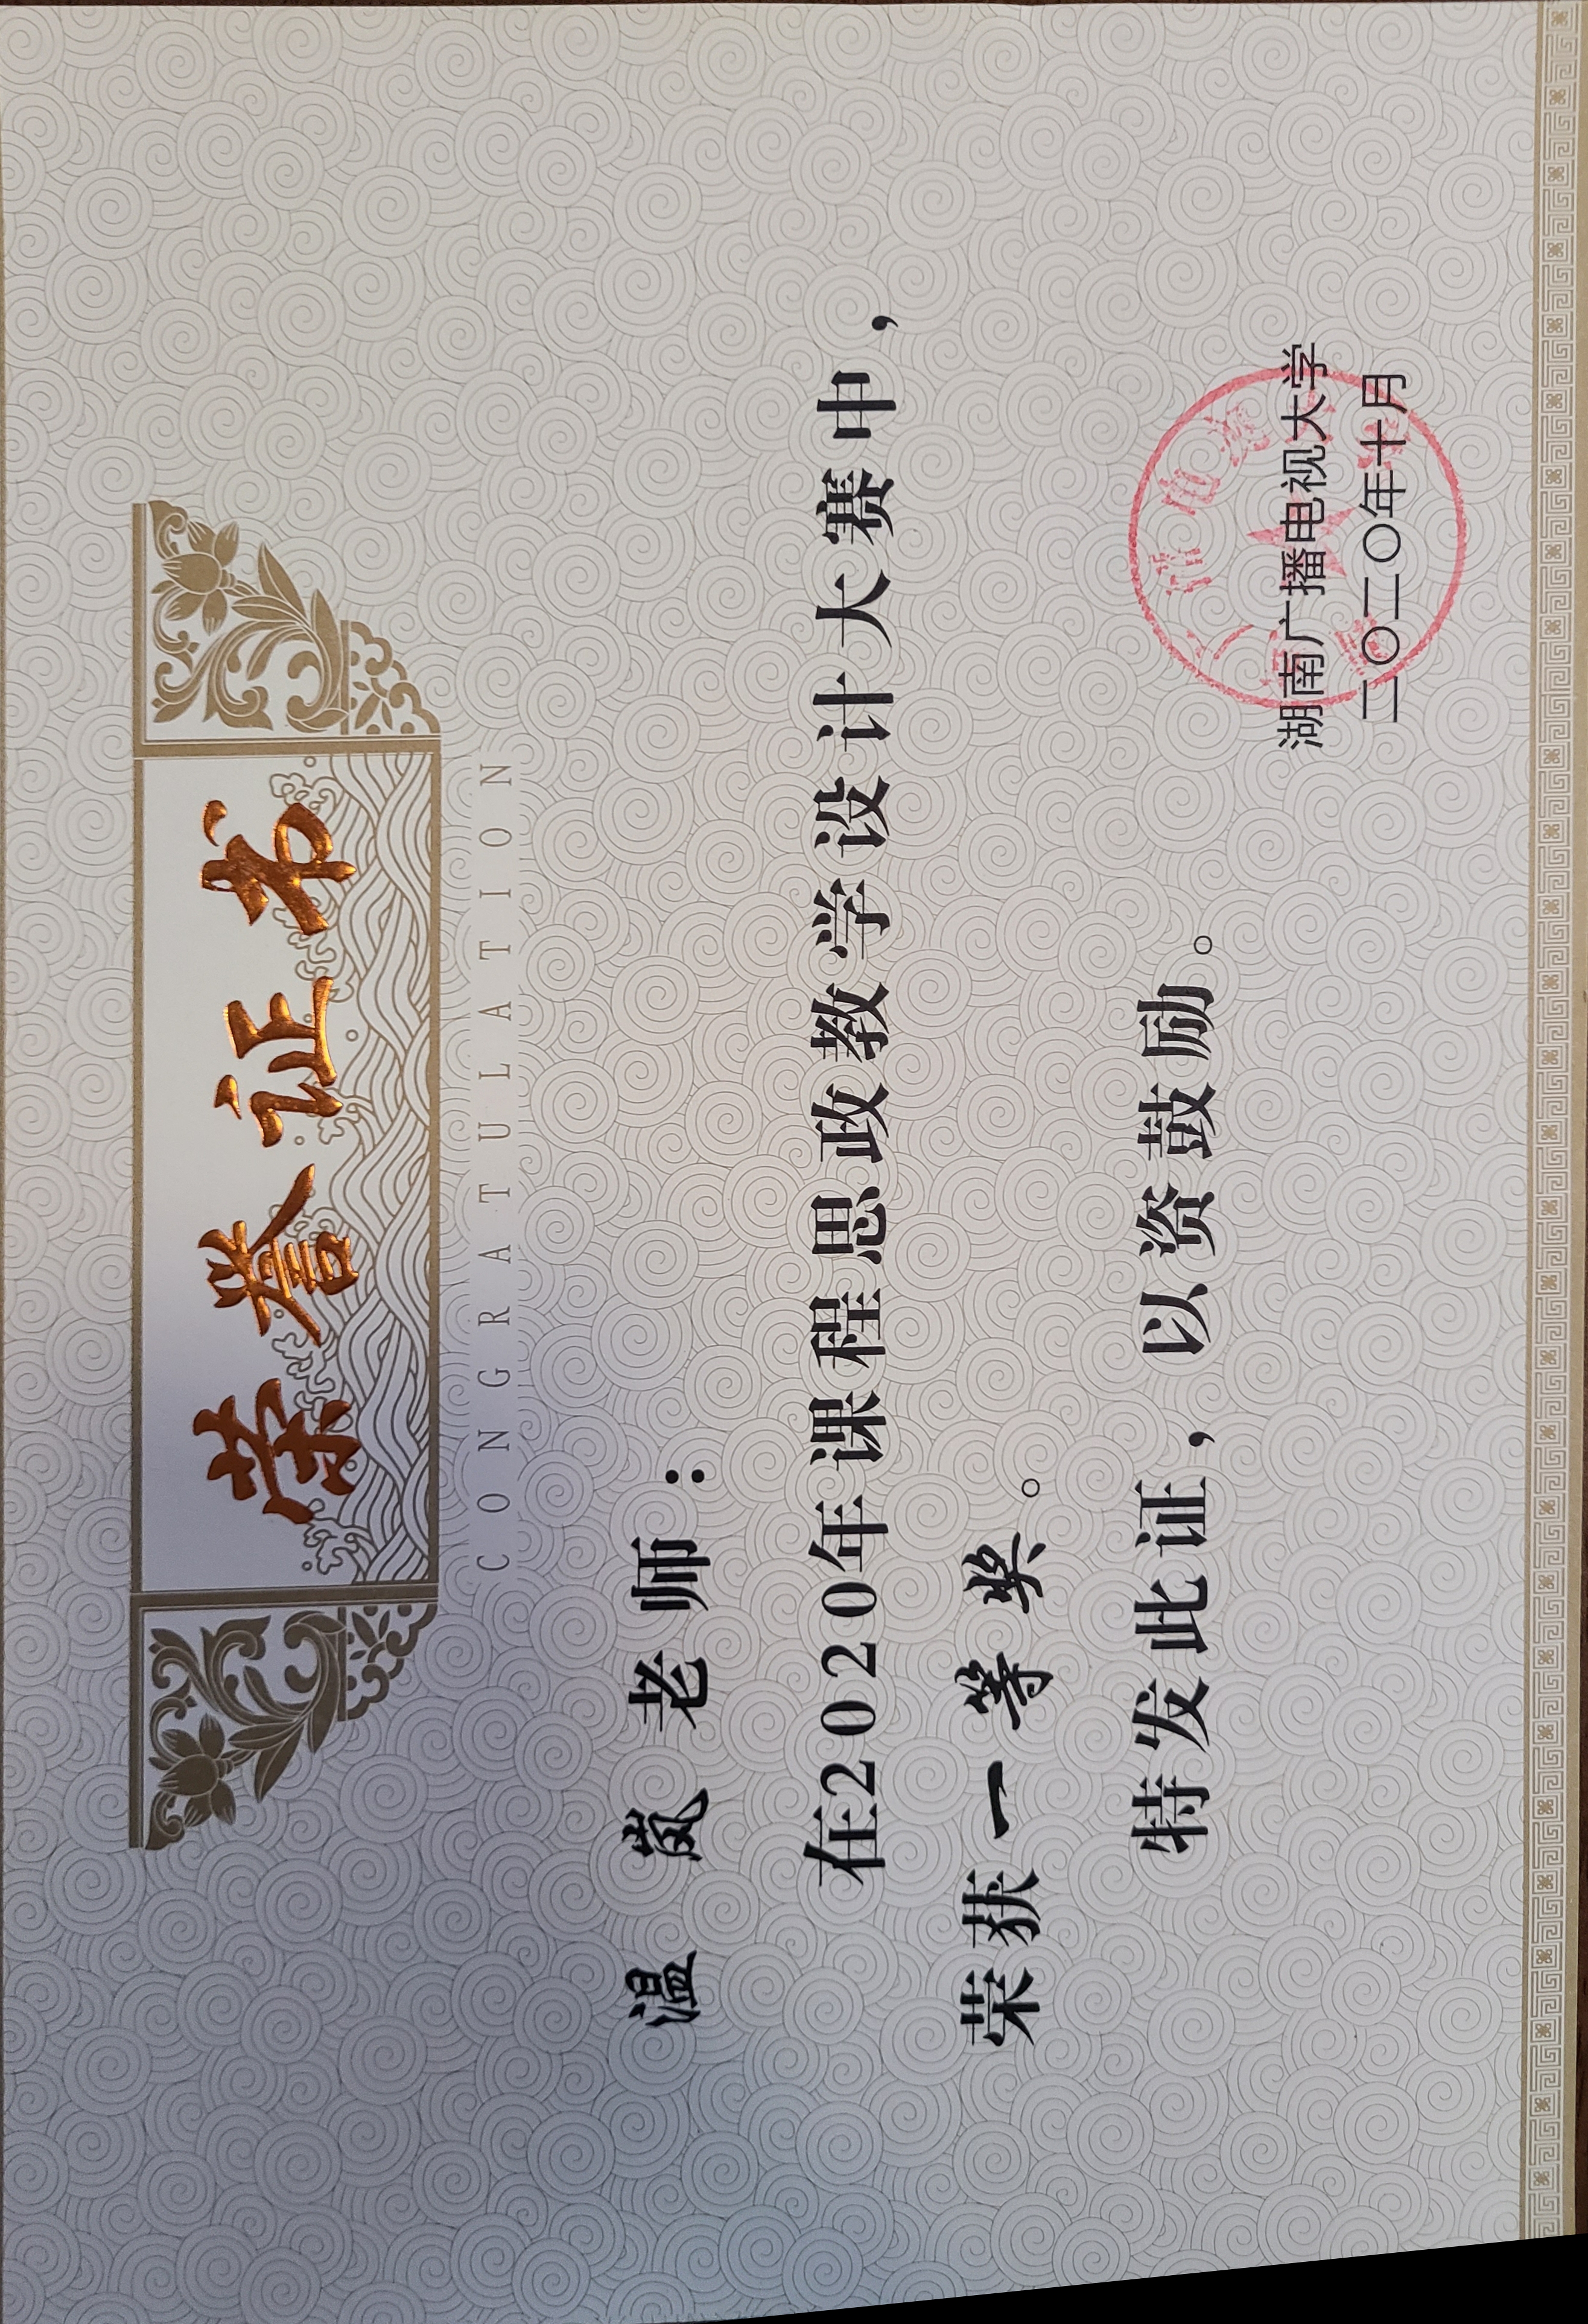 荣誉证书
CONGRATULATION
温岚老师：
在2020年课程思政教学设计大赛中，
荣获一等奖。
特发此证，以资鼓励。
湖南广播电视大学
二〇二〇年十月